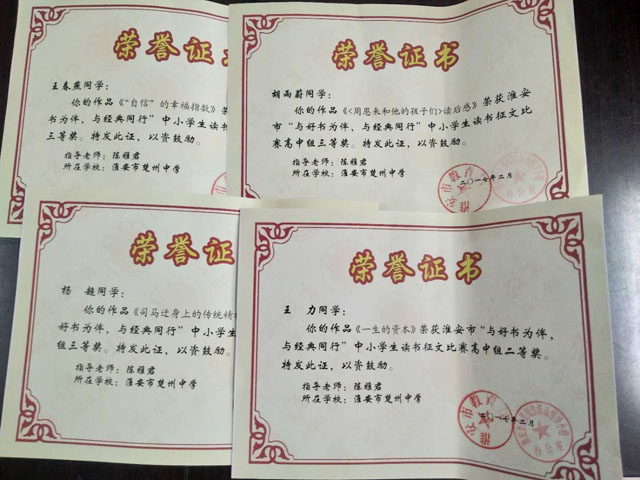 荣誉证书
王春燕同学：
你的作品《“自信”的幸福指数》荣
书为伴，与经典同行”中小学生读书
三等奖。特发此证，以资鼓励。
指导老师：陈雅君
所在学校：淮安市楚州中学
荣誉证书
胡雨蔚同学：
你的作品《<周恩来和他的孩子们>读后感》荣获淮安
市“与好书为伴，与经典同行”中小学生读书征文比
赛高中组三等奖。特发此证，以资鼓励。
指导老师：陈雅君
所在学校：淮安市楚州中学
二〇一七年二月
荣誉证
杨 越同学：
你的作品《司马迁身上的传统精
好书为伴，与经典同行”中小学生
组三等奖。特发此证，以资鼓励。
指导老师：陈雅君
所在学校：淮安市楚州中学
荣誉证书
王 力同学：
你的作品《一生的资本》荣获淮安市“与好书为伴，
与经典同行”中小学生读书征文比赛高中组二等奖。
特发此证，以资鼓励。
指导老师：陈雅君
所在学校：淮安市楚州中学
二〇一七年二月